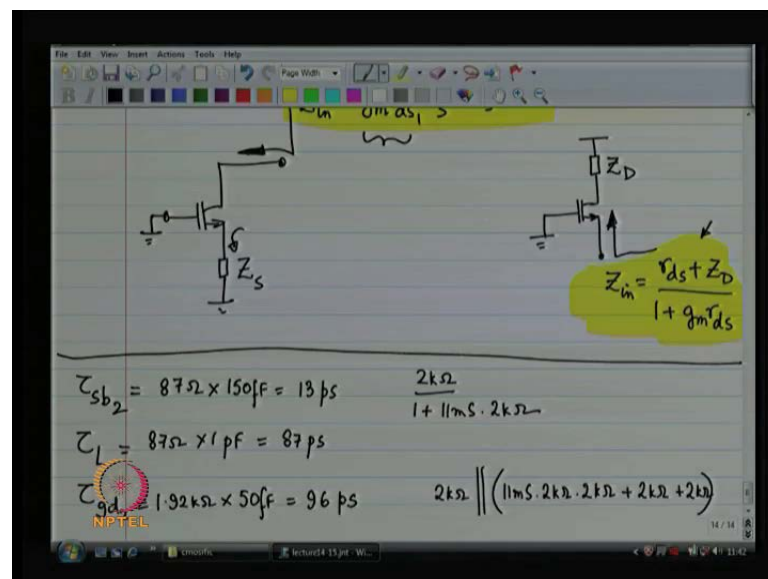 File Edit View Insert Actions Tools Help
Page Width
B I
Z_D
Z_S
Z_in = (r_ds + Z_D) / (1 + g_m r_ds)
τ_sb2 = 87Ω × 150fF = 13 ps
2kΩ / (1 + 11mS · 2kΩ)
τ_L = 87Ω × 1 pF = 87 ps
τ_gd = 1.92kΩ × 50fF = 96 ps
2kΩ || (11mS · 2kΩ · 2kΩ + 2kΩ + 2kΩ)
NPTEL
14 / 14
cmosrfic
lecture14-15.jnt - Wi...
11:42